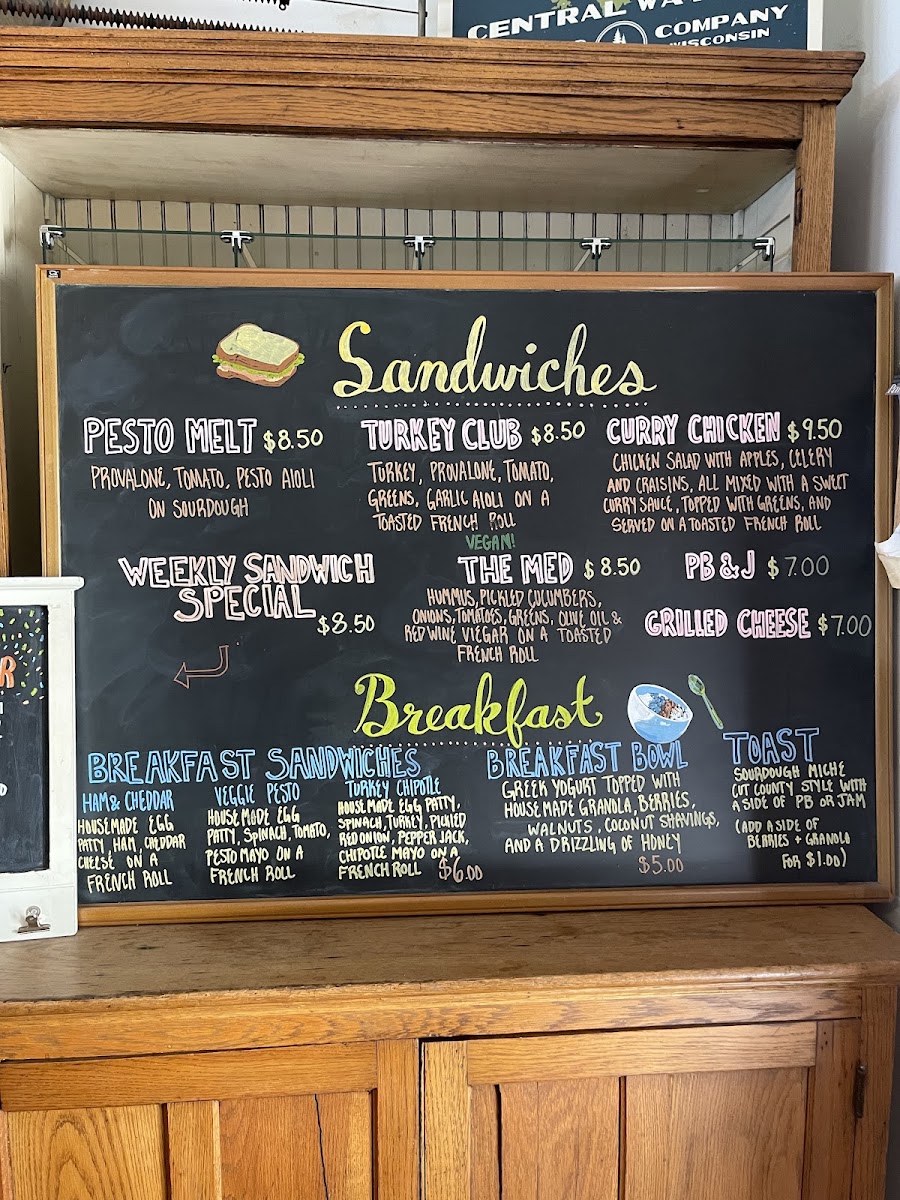 CENTRAL WA
COMPANY
WISCONSIN
Sandwiches
PESTO MELT $8.50
PROVALONE, TOMATO, PESTO AIOLI
ON SOURDOUGH
TURKEY CLUB $8.50
TURKEY, PROVALONE, TOMATO,
GREENS, GARLIC AIOLI ON A
TOASTED FRENCH ROLL
CURRY CHICKEN $9.50
CHICKEN SALAD WITH APPLES, CELERY
AND CRAISINS, ALL MIXED WITH A SWEET
CURRY SAUCE, TOPPED WITH GREENS, AND
SERVED ON A TOASTED FRENCH ROLL
WEEKLY SANDWICH
SPECIAL
$8.50
VEGAN!
THE MED $8.50
HUMMUS, PICKLED CUCUMBERS,
ONIONS, TOMATOES, GREENS, OLIVE OIL &
RED WINE VIEGAR ON A TOASTED
FRENCH ROLL
PB & J $7.00
GRILLED CHEESE $7.00
Breakfast
BREAKFAST SANDWICHES
HAM & CHEDDAR
HOUSEMADE EGG
PATTY, HAM, CHEDDAR
CHEESE ON A
FRENCH ROLL
VEGGIE PESTO
HOUSEMADE EGG
PATTY, SPINACH, TOMATO,
PESTO MAYO ON A
FRENCH ROLL
TURKEY CHIPOTLE
HOUSEMADE EGG PATTY,
SPINACH, TURKEY, PICKLED
RED ONION, PEPPER JACK,
CHIPOTLE MAYO ON A
FRENCH ROLL
$6.00
BREAKFAST BOWL
GREEK YOGURT TOPPED WITH
HOUSEMADE GRANOLA, BERRIES,
WALNUTS, COCONUT SHAVINGS,
AND A DRIZZLING OF HONEY
$5.00
TOAST
SOURDOUGH MICHE
CUT COUNTY STYLE WITH
A SIDE OF PB OR JAM
(ADD A SIDE OF
BERRIES + GRANOLA
FOR $1.00)